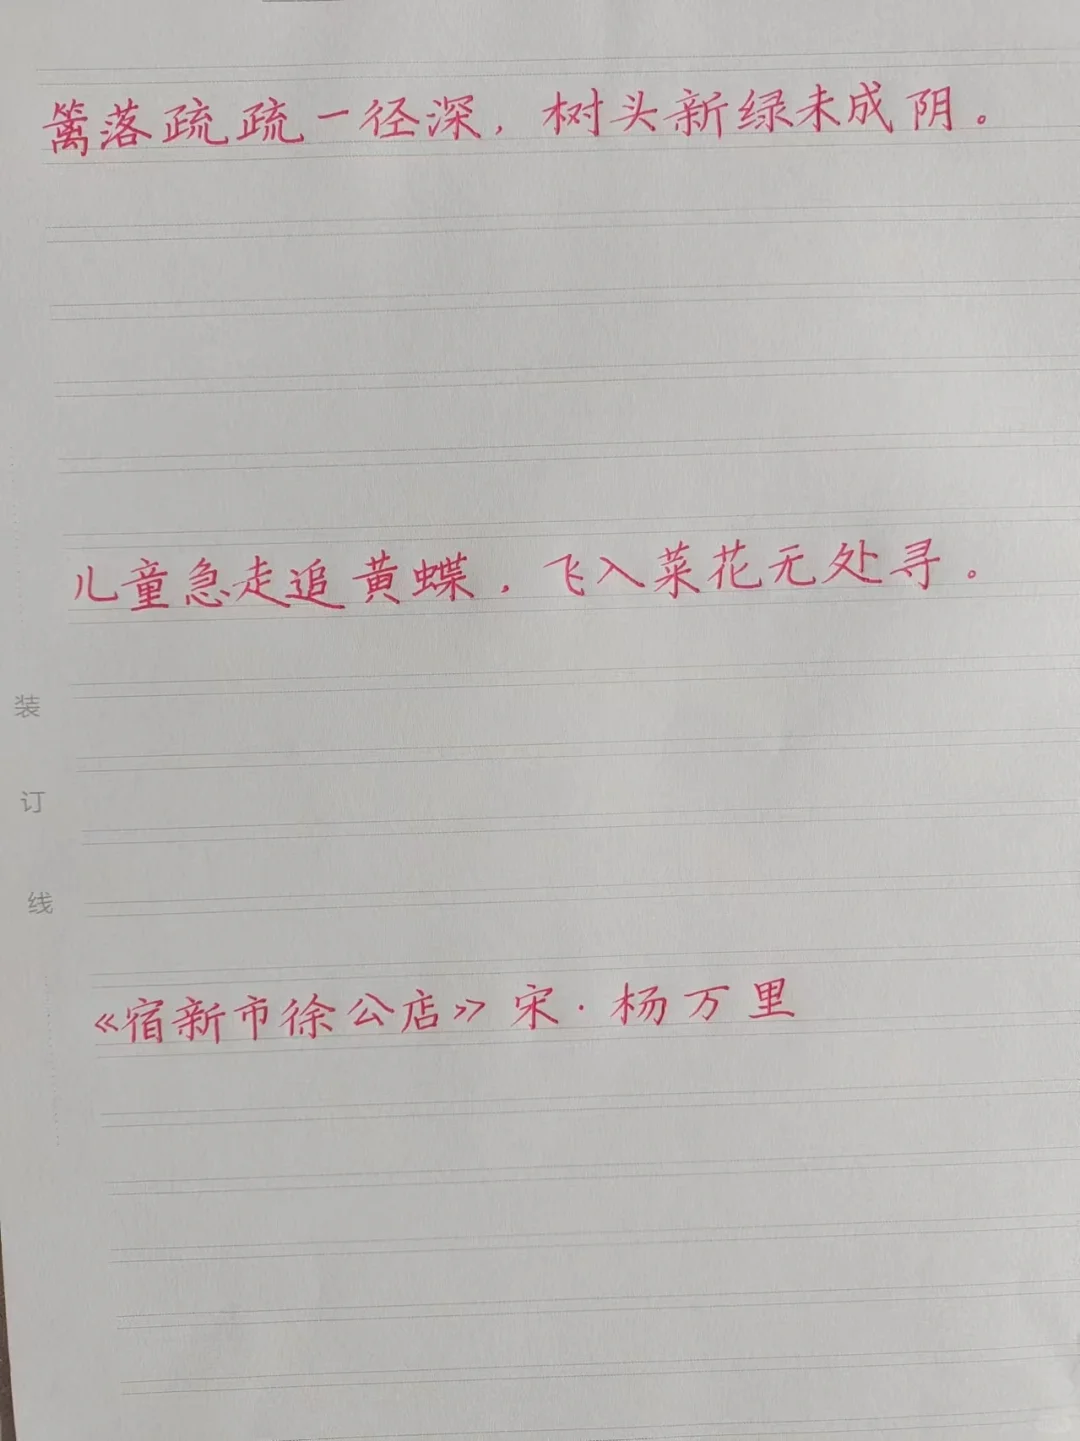 篱落疏疏一径深，树头新绿未成阴。
儿童急走追黄蝶，飞入菜花无处寻。
装订线
《宿新市徐公店》宋·杨万里